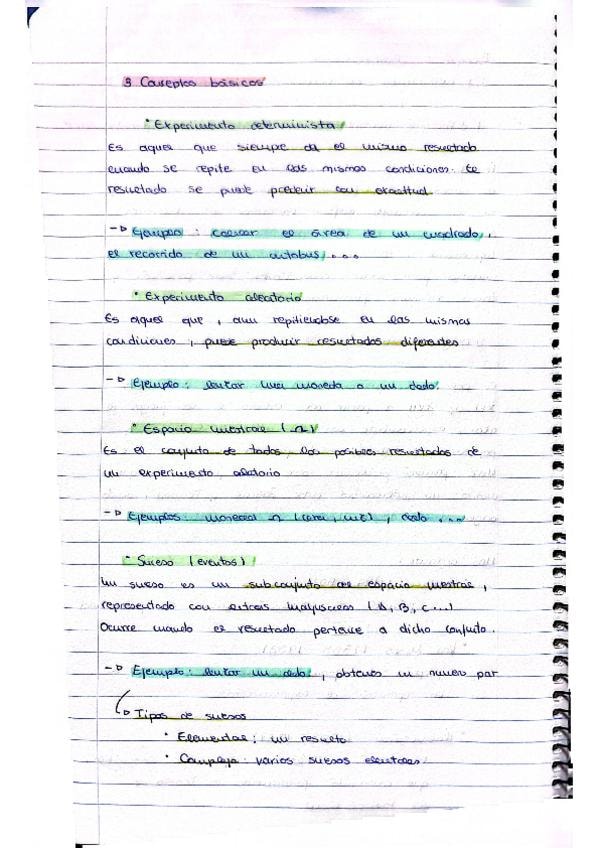 3 Conceptos básicos
• Experimento determinista
Es aquel que siempre da el mismo resultado
cuando se repite en las mismas condiciones. El
resultado se puede predecir con exactitud
→ Ejemplo: calcular el área de un cuadrado,
el recorrido de un autobus, ...
• Experimento aleatorio
Es aquel que, aun repitiendose en las mismas
condiciones, puede producir resultados diferentes
→ Ejemplo: lanzar una moneda o un dado.
• Espacio muestral (Ω)
Es el conjunto de todos los posibles resultados de
un experimento aleatorio
→ Ejemplos: moneda Ω (cara, cruz), dado ...
• Suceso (eventos)
Un suceso es un subconjunto del espacio muestral,
representado con letras mayusculas (A, B, C...)
Ocurre cuando el resultado pertenece a dicho conjunto.
→ Ejemplo: lanzar un dado, obtener un numero par
→ Tipos de sucesos
• Elemental: un
• varios sucesos